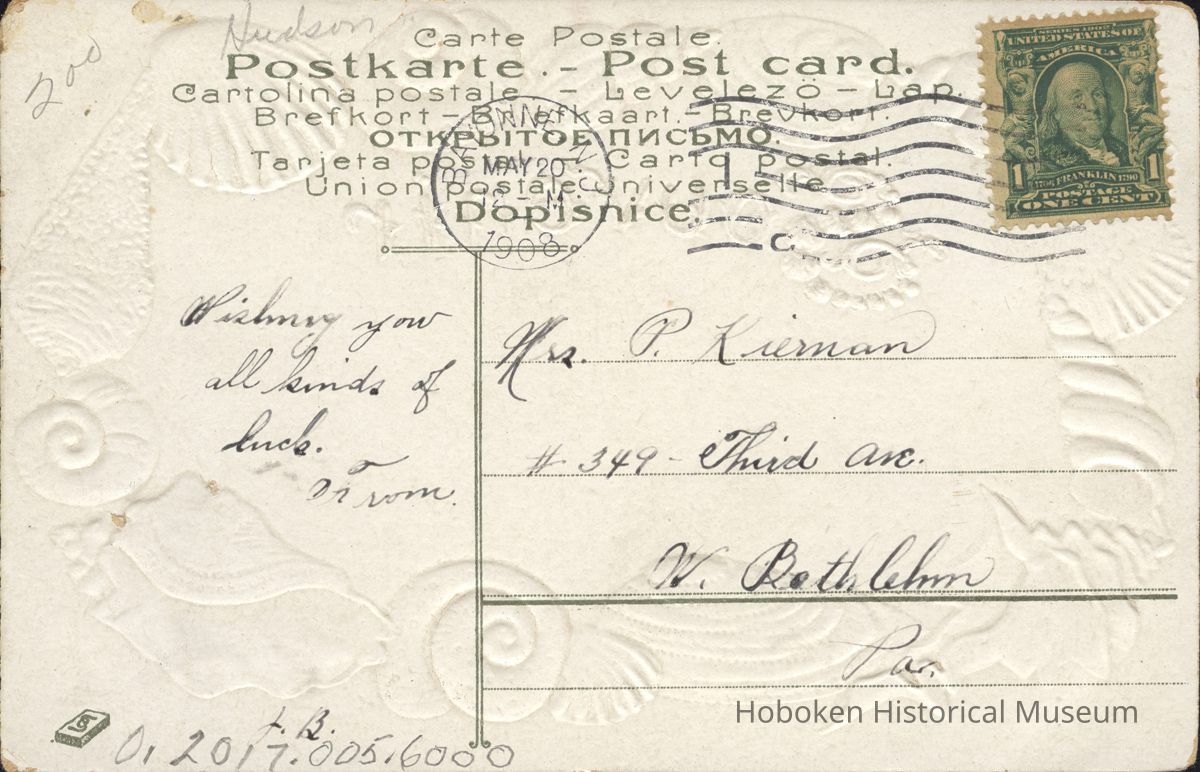 Hudson
200
Carte Postale.
Postkarte. - Post card.
Cartolina postale - Levelezö - Lap.
Brefkort - Briefkaart. - Brevkort.
ОТКРЫТОЕ ПИСЬМО.
Tarjeta postal - Carto postal.
Union postale Universelle
Dopisnice.
MAY 20
12 - M
1908
SERIES 1902
UNITED STATES OF
AMERICA
1706 FRANKLIN 1790
1 POSTAGE 1
ONE CENT
Wishing you
all kinds of
luck.
From
J. B.
Mrs. P. Kiernan
# 349 - Third Ave.
W. Bethlehm
Pa.
S
01 2017.005.6000
Hoboken Historical Museum